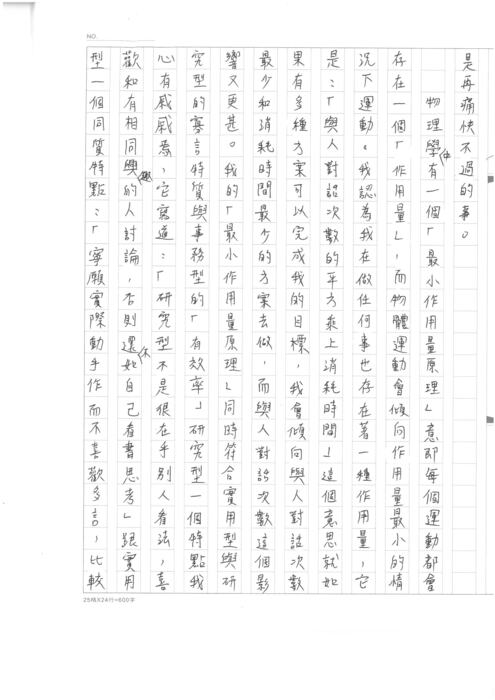 NO.
是再痛快不過的事。
物理學中有一個「最小作用量原理」意即每個運動都會
存在一個「作用量」,而物體運動會傾向作用量最小的情
況下運動。我認為我在做任何事也存在著一種作用量,它
是:「與人對話次數的平方乘上消耗時間」這個意思就如
果有多種方案可以完成我的目標,我會傾向與人對話次數
最少和消耗時間最少的方案去做,而與人對話次數這個影
響又更甚。我的「最小作用量原理」同時符合實用型與研
究型的寡言特質與事務型的「有效率」研究型一個特點我
心有戚戚焉,它寫道:「研究型不是很在乎別人看法,喜
歡和有相同興趣的人討論,否則還不如自己看書思考」跟實用
型一個同質特點:「寧願實際動手作而不喜歡多言,比較
25格X24行=600字